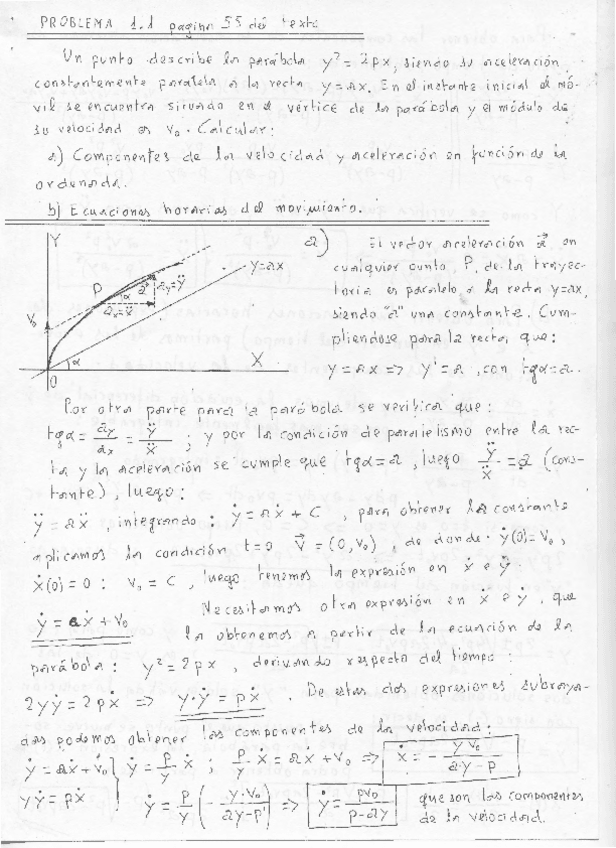 PROBLEMA 1.1 pagina 55 del texto
Un punto describe la parábola y² = 2px, siendo su aceleración
constantemente paralela a la recta y=ax. En el instante inicial el mó-
vil se encuentra situado en el vértice de la parábola y el módulo de
su velocidad es v₀. Calcular:
a) Componentes de la velocidad y aceleración en función de la
ordenada.
b) Ecuaciones horarias del movimiento.
Y
P
α
a⃗
a_y=ÿ
a_x=ẍ
y=ax
V₀
α
X
O
a) El vector aceleración a⃗ en
cualquier punto P, de la trayec-
toria es paralelo a la recta y=ax,
siendo "a" una constante. Cum-
pliendose para la recta que:
y=ax => y'=a, con tgα=a.
Por otra parte para la parábola se verifica que:
tgα = a_y/a_x = ÿ/ẍ ; y por la condición de paralelismo entre la rec-
ta y la aceleración se cumple que tgα=a, luego ÿ/ẍ = a (cons-
tante), luego:
ÿ = aẍ, integrando: ẏ = aẋ + C, para obtener la constante
aplicamos la condición t=0, V⃗ = (0,v₀), de donde ẏ(0)=v₀,
ẋ(0)=0 : v₀ = C, luego tenemos la expresión en ẋ e ẏ:
ẏ = aẋ + v₀ Necesitamos otra expresión en ẋ e ẏ, que
la obtenemos a partir de la ecuación de la
parábola: y² = 2px, derivando respecto del tiempo:
2yẏ = 2pẋ => y·ẏ = pẋ. De estas dos expresiones subraya-
das podemos obtener las componentes de la velocidad:
ẏ = aẋ + v₀ } ẏ = p/y ẋ ; p/y ẋ = aẋ + v₀ => ẋ = - y v₀/(ay-p)
yẏ = pẋ } ẏ = p/y (- y·v₀/(ay-p)) => ẏ = pv₀/(p-ay) que son las componentes
de la velocidad.